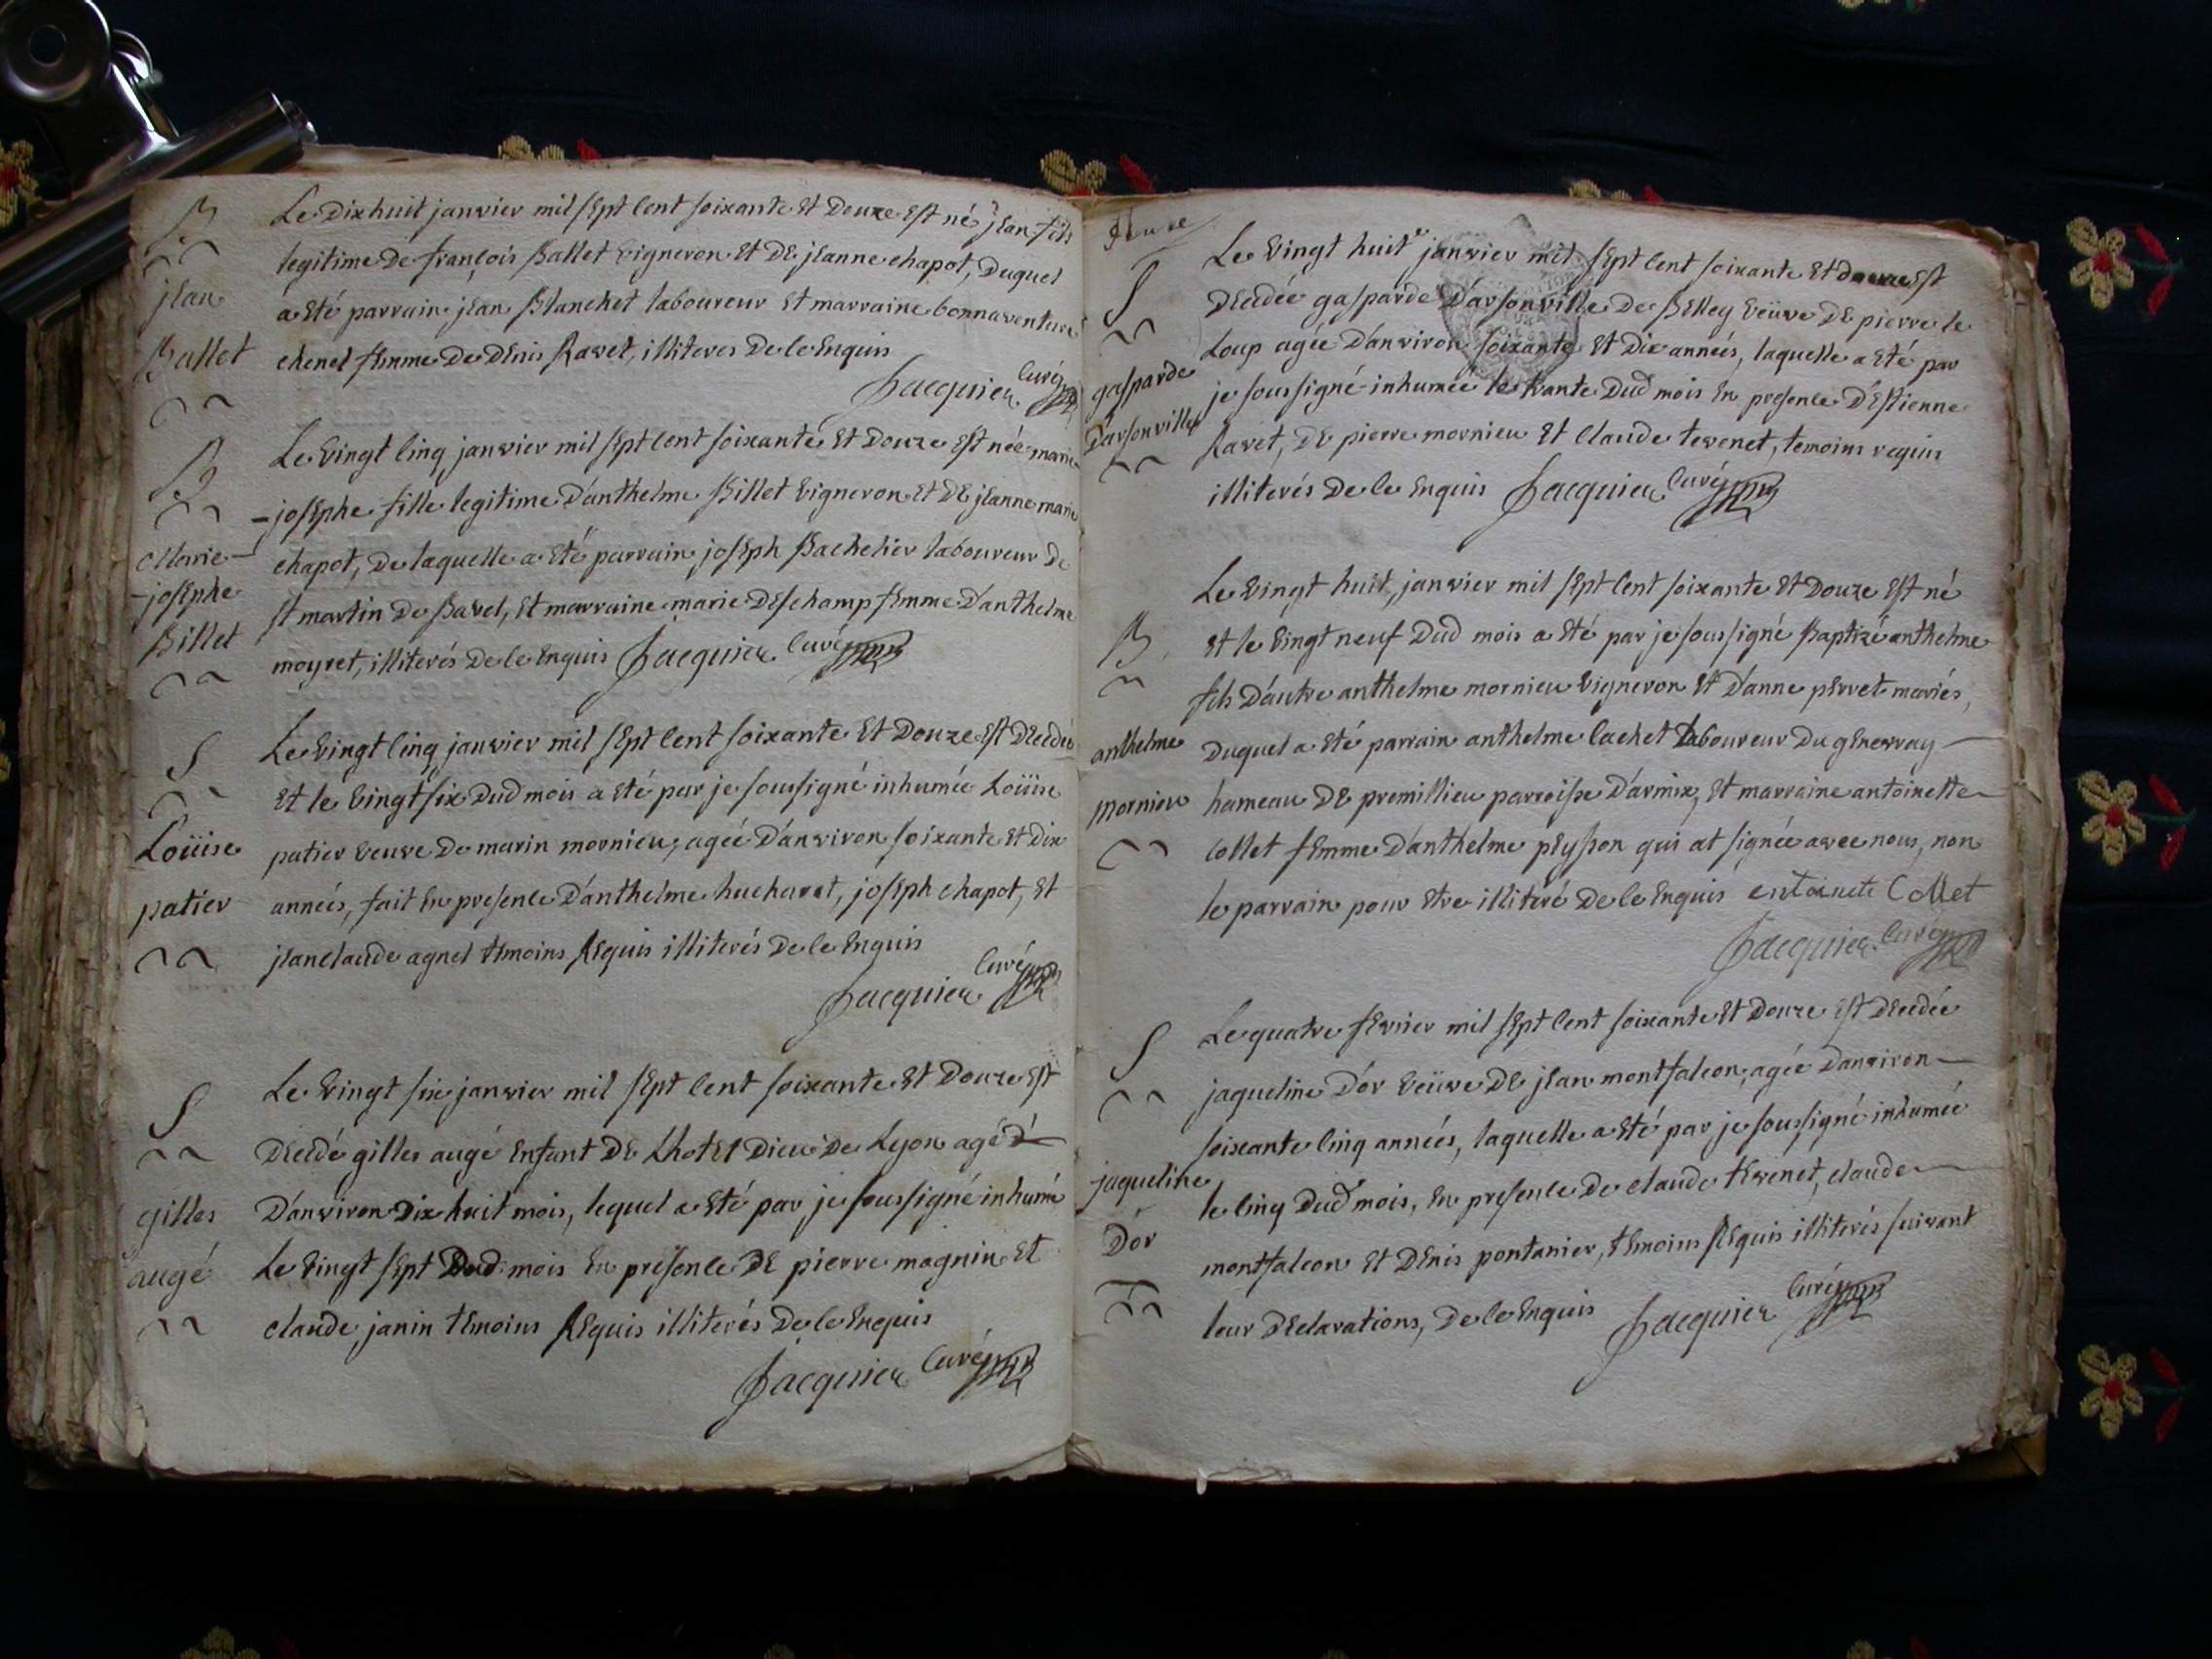 B
jean
Ballet
Le Dix huit janvier mil sept cent soixante et Douze est né jean fils
legitime De françois Ballet vigneron et De jeanne chapot, Duquel
a eté parrain jean Blanchet laboureur et marraine bonnaventure
chenel femme De Denis Ravet, illiteres De ce enquis
Jacquier Curé
B
Marie-
-josephe
Billet
Le vingt cinq janvier mil sept cent soixante et Douze est née marie
-josephe fille legitime D'anthelme Billet vigneron et De jeanne marie
chapot, De laquelle a eté parrain joseph Bachelier laboureur De
st martin De Bavel, et marraine marie Deschamp femme D'anthelme
moyret, illiterés De ce enquis Jacquier Curé
S
Loüise
patier
Le vingt cinq janvier mil sept cent soixante et Douze est Decedée
et le vingt six Dud mois a eté par je soussigné inhumée Loüise
patier veuve De marin mornieu, agée D'anviron soixante et Dix
années, fait en presence D'anthelme hucharat, joseph chapot, et
jeanclaude agnel temoins Requis illiterés De ce enquis
Jacquier Curé
S
gilles
augé
Le vingt six janvier mil sept cent soixante et Douze est
Decedé gilles augé enfant De Lhotel Dieu De Lyon agé D'
D'anviron Dix huit mois, lequel a eté par je soussigné inhumé
Le vingt sept Dud mois en presence De pierre magnin et
claude janin temoins Requis illiterés De ce enquis
Jacquier Curé
S
gasparde
D'arsonville
Le vingt huit janvier mil sept cent soixante et douze est
Decedée gasparde D'arsonville De Belley veüve De pierre le
Loup agée D'anviron soixante et Dix années, laquelle a eté par
je soussigné inhumée le trante Dud mois en presence D'Estienne
Ravet, De pierre mornieu et Claude tevenet, temoins requis
illiterés De ce enquis Jacquier Curé
B
anthelme
mornieu
Le vingt huit, janvier mil sept cent soixante et Douze est né
et le vingt neuf Dud mois a eté par je soussigné Baptizé anthelme
fils D'autre anthelme mornieu vigneron et D'anne perret mariés,
Duquel a eté parrain anthelme Cachet laboureur Du generray
hameau De premillieu parroisse D'armix, et marraine antoinette
Collet femme D'anthelme peysson qui at signée avec nous, non
le parrain pour etre illiteré De ce enquis entoinete Collet
Jacquier Curé
S
jaqueline
D'or
Le quatre fevrier mil sept cent soixante et Douze est Decedée
jaqueline D'or veüve De jean montfalcon, agée D'anviron
soixante cinq années, laquelle a eté par je soussigné inhumée
le cinq Dud mois, en presence De claude tevenet, claude
montfalcon et Denis pontanier, temoins Requis illiterés suivant
leur Declarations, De ce enquis Jacquier Curé